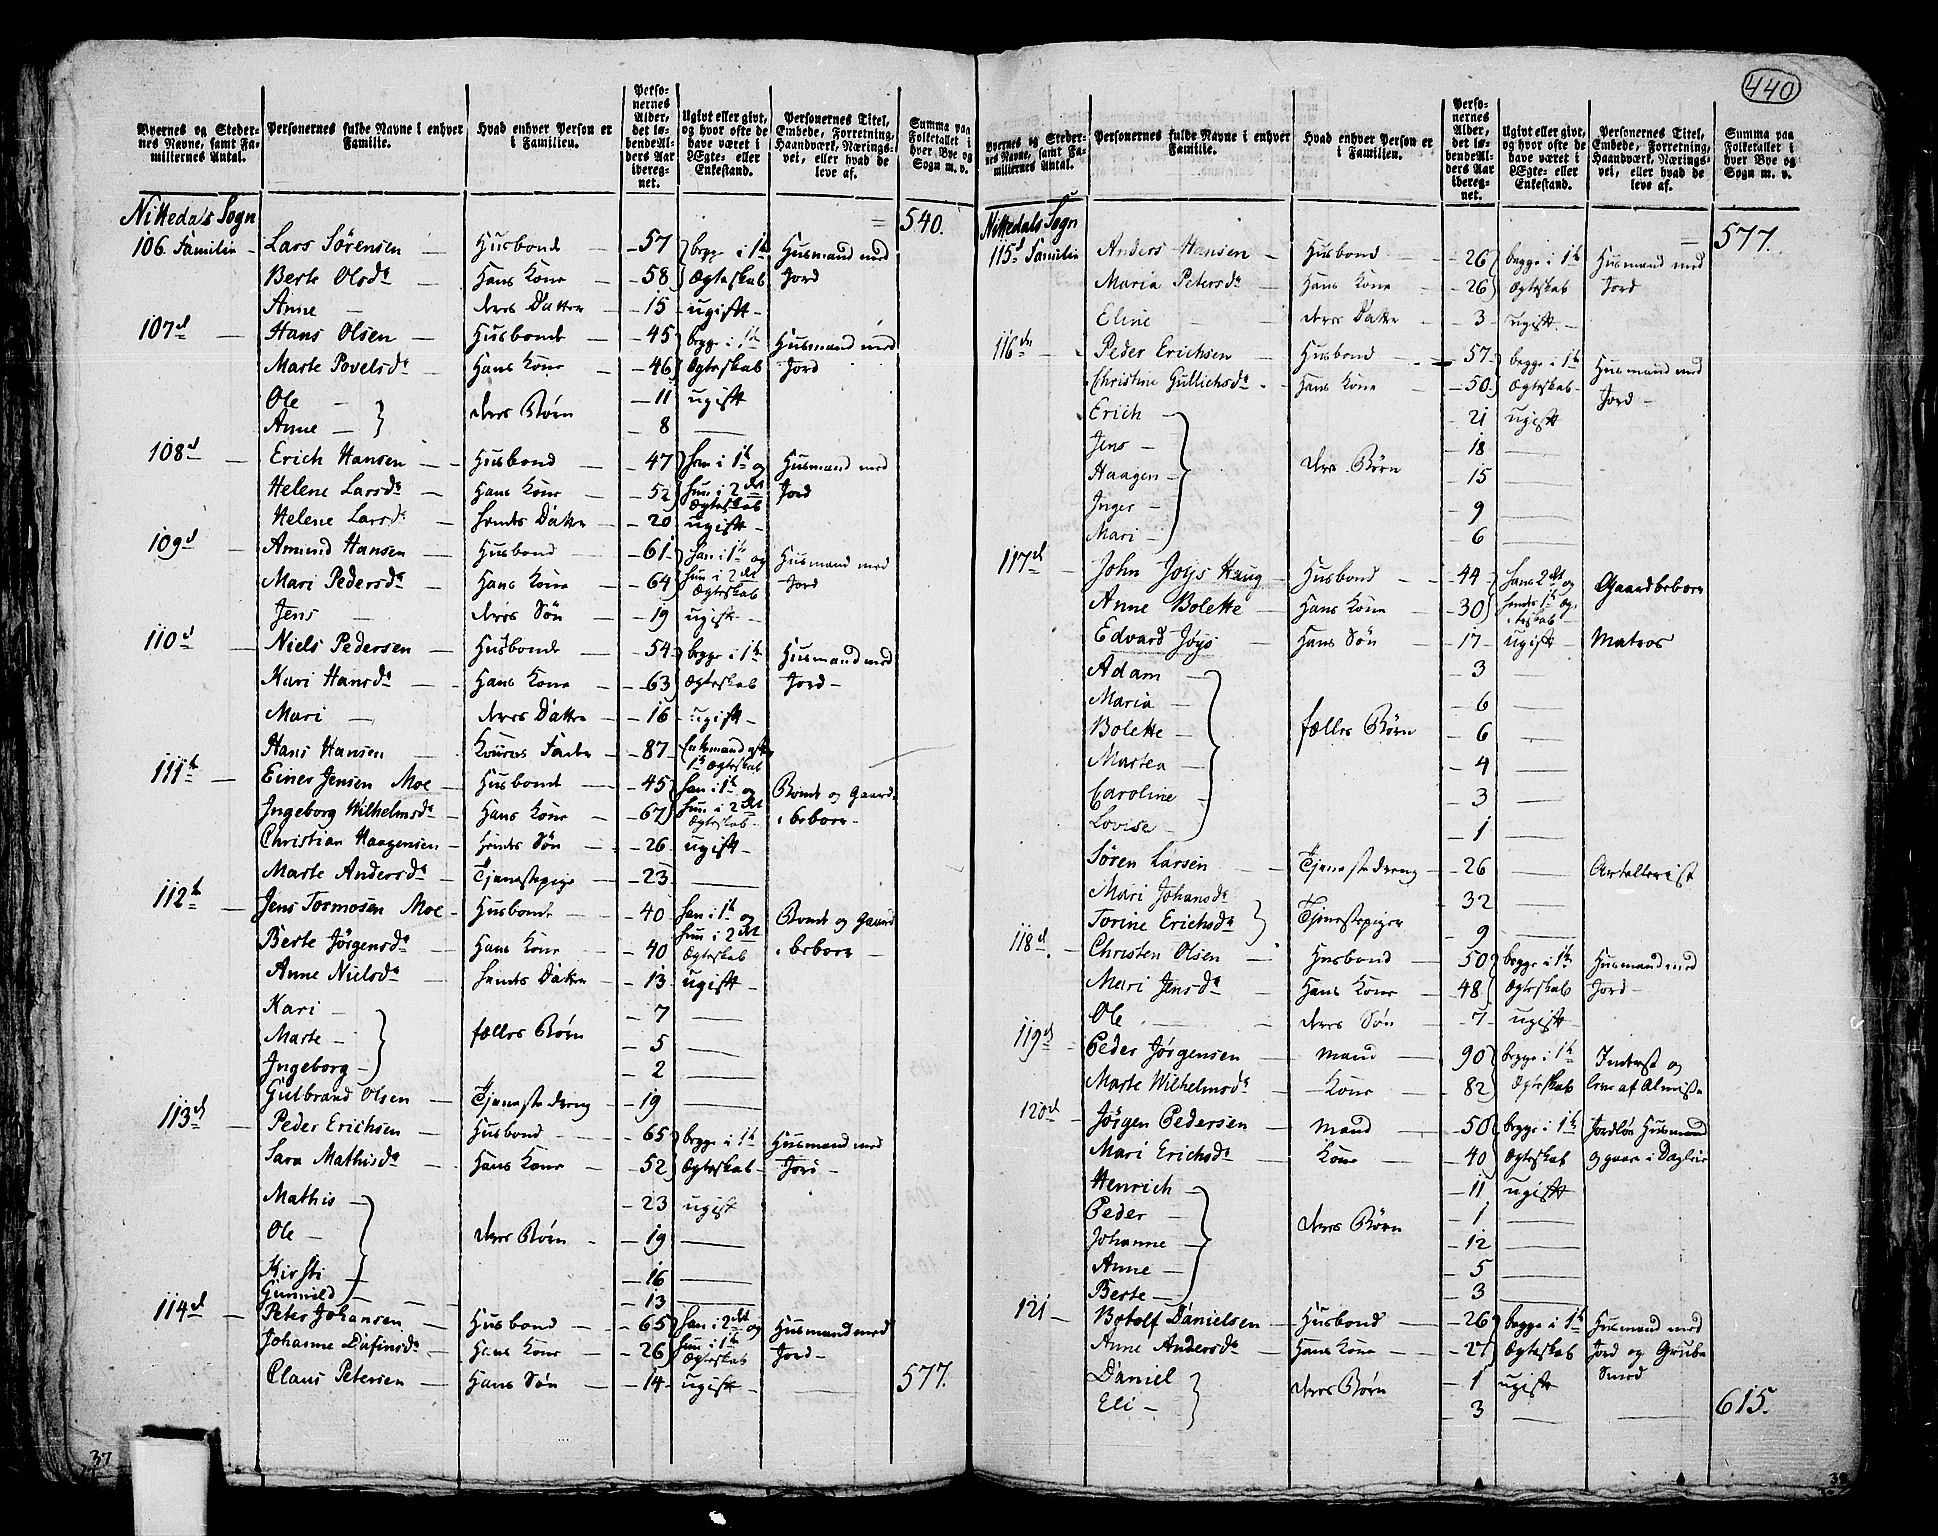 440
Byernes og Stedernes Navne, samt Familiernes Antal.
Personernes fulde Navne i enhver Familie.
Hvad enhver Person er i Familien.
Personernes Alder, det løbende Alders Aar iberegnet.
Ugivt eller givt, og hvor ofte de have været i Ægte- eller Enkestand.
Personernes Titel, Embede, Forretning, Haandværk, Næringsvei, eller hvad de leve af.
Summa paa Folketallet i hver Bye og Sogn m. v.
Nittedals Sogn = 540.
106. Familie Lars Sørensen Husbonde 57 begge i 1te Husmand med
Berte Olsda Hans Kone 58 Ægteskab Jord
Anne deres Datter 15 ugift
107d Hans Olsen Husbonde 45 begge i 1te Husmand med
Marte Povelsda Hans Kone 46 Ægteskab Jord
Ole deres Børn 11 ugift
Anne 8
108d Erich Hansen Husbond 47 han i 1te og Husmand med
Helene Larsda Hans Kone 52 hun i 2det Ægteskab Jord
Helene Larsda hendes Datter 20 ugift
109d Amund Hansen Husbond 61 han i 1te og Husmand med
Mari Pedersda Hans Kone 64 hun i 2det Ægteskab Jord
Jens deres Søn 19 ugift
110d Niels Pedersen Husbonde 54 begge i 1te Husmand med
Kari Hansda Hans Kone 63 Ægteskab Jord
Mari deres Datter 16 ugift
Hans Hansen Konens Fader 87 Enkemand efter 1te Ægteskab
111te Einer Jensen Moe Husbonde 45 han i 1te og Bonde og Gaard
Ingeborg Wilhelmsda Hans Kone 67 hun i 2det Ægteskab beboer
Christian Haagensen hendes Søn 26 ugift
Marte Andersda Tjenestepige 23
112te Jens Tormosen Moe Husbonde 40 han i 1te og Bonde og Gaard
Berte Jørgensda Hans Kone 40 hun i 2det Ægteskab beboer
Anne Nielsda hendes Datter 13 ugift
Kari 7
Marte fælles Børn 5
Ingeborg 2
Gulbrand Olsen Tjenestedreng 19
113d Peder Erichsen Husbond 65 begge i 1te Husmand med
Sara Mathisda Hans Kone 52 Ægteskab Jord
Mathis 23 ugift
Ole deres Børn 19
Kirsti 16
Gunnild 13
114d Peter Johansen Husbond 65 han i 2det og Husmand med
Johanne Dafinsda Hans Kone 26 hun i 1te Ægteskab Jord
Claus Petersen Hans Søn 14 ugift 577.
37
Byernes og Stedernes Navne, samt Familiernes Antal.
Personernes fulde Navne i enhver Familie.
Hvad enhver Person er i Familien.
Personernes Alder, det løbende Alders Aar iberegnet.
Ugivt eller givt, og hvor ofte de have været i Ægte- eller Enkestand.
Personernes Titel, Embede, Forretning, Haandværk, Næringsvei, eller hvad de leve af.
Summa paa Folketallet i hver Bye og Sogn m. v.
Nittedals Sogn = 577.
115d Familie Anders Hansen Husbond 26 begge i 1te Husmand med
Maria Petersda Hans Kone 26 Ægteskab Jord
Eline deres Datter 3 ugift
116de Peder Erichsen Husbond 57 begge i 1te Husmand med
Christine Gullichsda Hans Kone 50 Ægteskab Jord
Erich 21 ugift
Jens 18
Haagen deres Børn 15
Inger 9
Mari 6
117de John Joys Haug Husbond 44 hans 2det og Gaardbeboer
Anne Bolette Hans Kone 30 hendes 1te Ægteskab
Edvard Joys Hans Søn 17 ugift Matros
Adam 3
Maria 6
Bolette fælles Børn 6
Martea 4
Caroline 3
Lovise 1
Søren Larsen Tjenestedreng 26 Artellerist
Mari Johansda 32
Torine Erichsda Tjenestepiger 9
118d Christen Olsen Husbond 50 begge i 1te Husmand med
Mari Jensda Hans Kone 48 Ægteskab Jord
Ole deres Søn 7 ugift
119d Peder Jørgensen Mand 90 begge i 1te Inderst og
Marte Wilhelmsda Kone 82 Ægteskab lever af Almisse
120d Jørgen Pedersen Mand 50 begge i 1te Jordløs Husmand
Mari Erichsda Kone 40 Ægteskab og gaar i Dagleie
Henrich 11 ugift
Peder 1
Johanne deres Børn 12
Anne 5
Berte 3
121 Botolf Danielsen Husbond 26 begge i 1te Husmand med
Anne Andersda Hans Kone 27 Ægteskab Jord og Grube
Daniel deres Børn 1 ugift Smed
Eli 3 615.
38